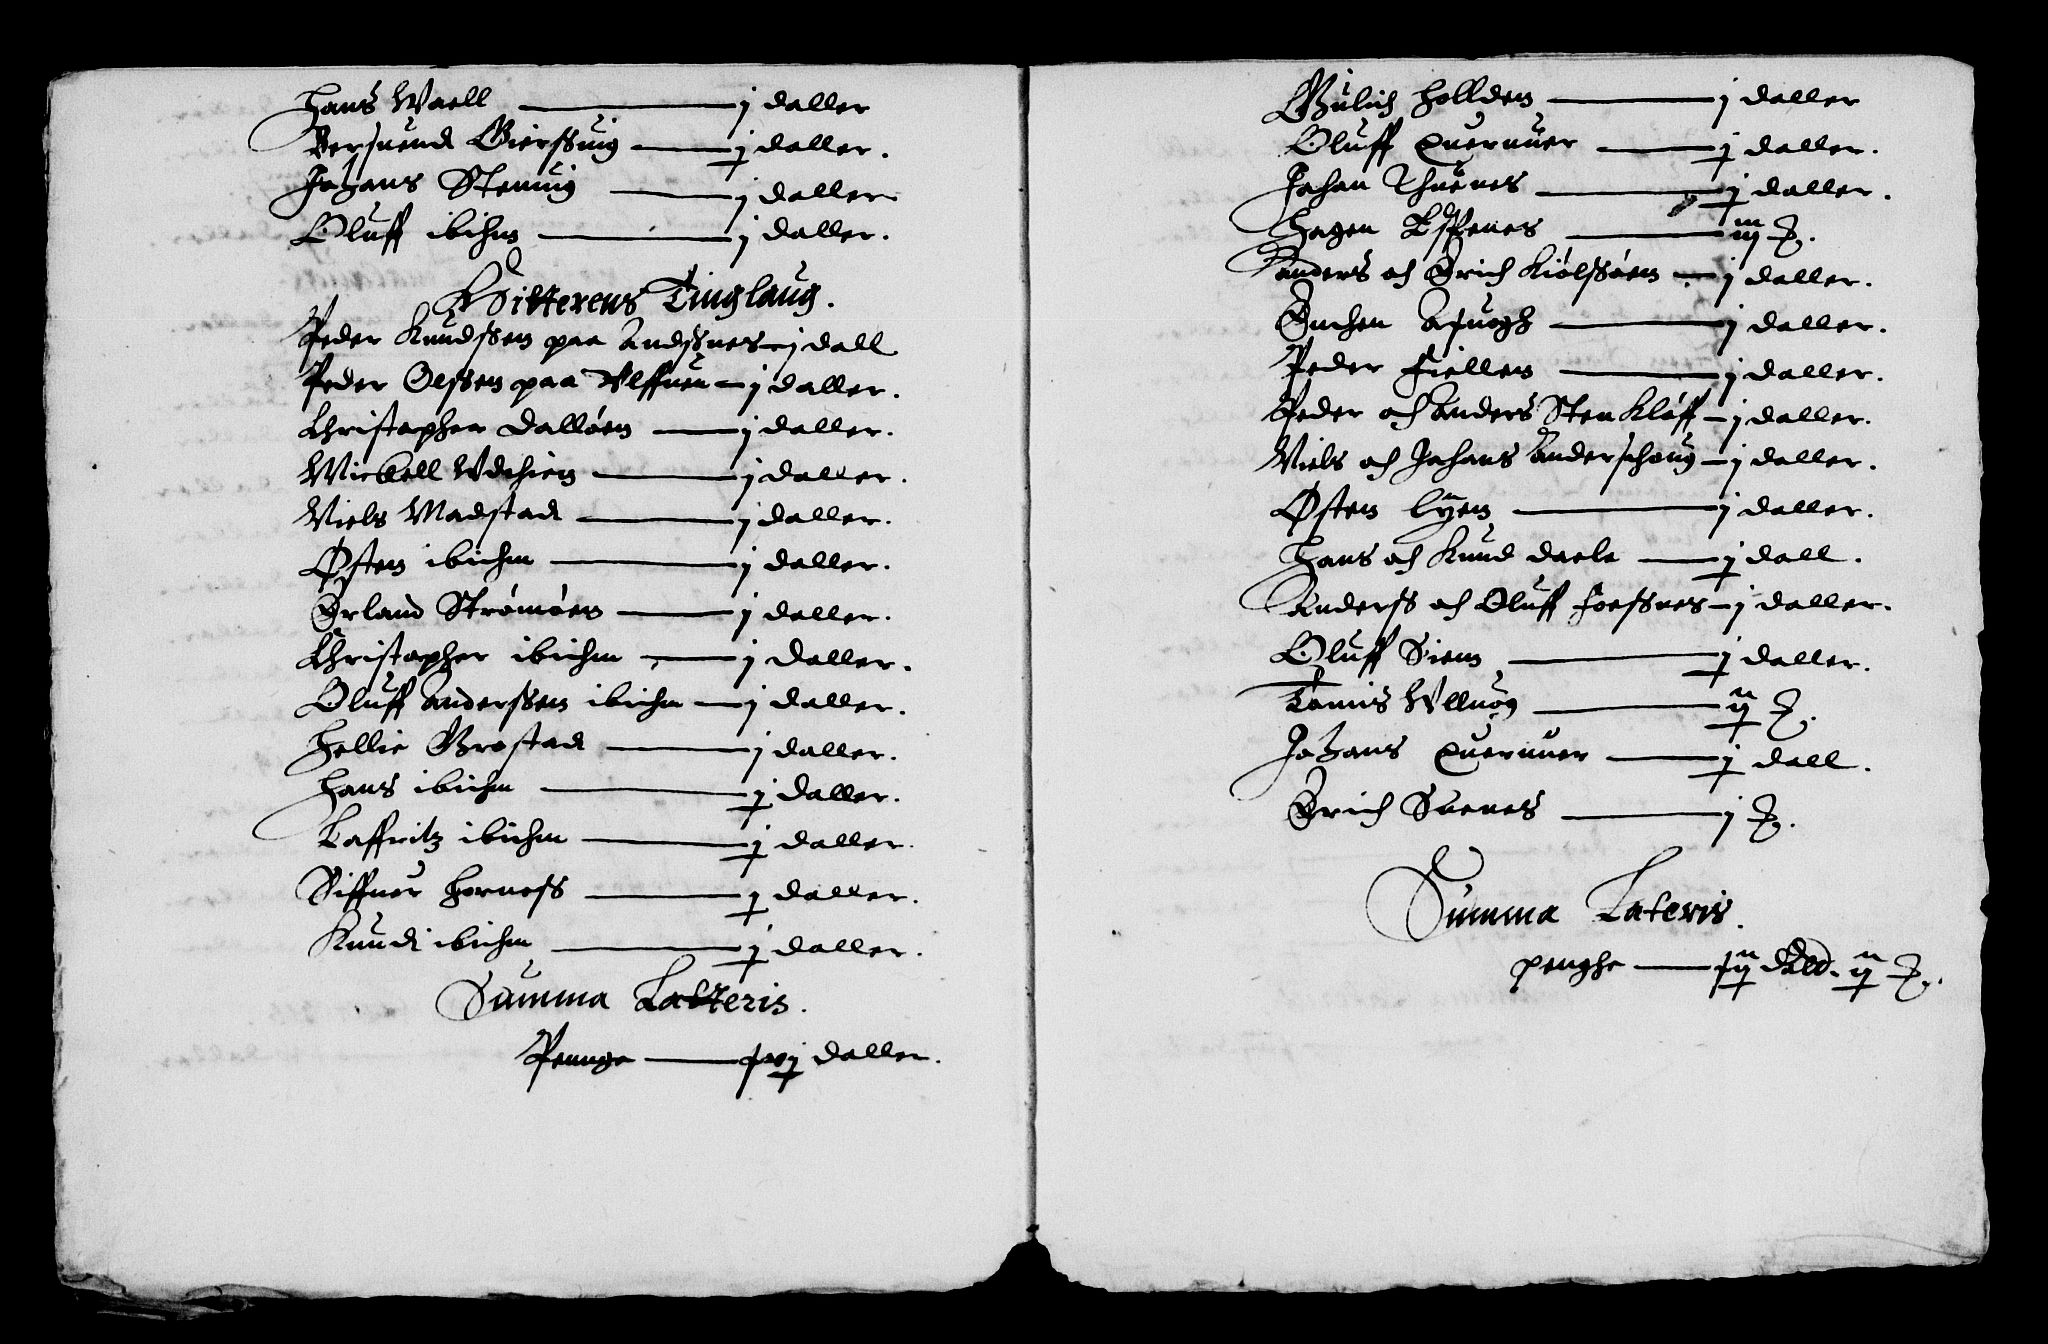 Hans Waell — j daller
Bersuend Gierssuig — j daller.
Johans Stenuig — j daller
Oluff ibihm — j daller.
Hitterens Tinglaug.
Peder Knudssen paa Andssnes — j dall
Peder Olssen paa Ulffuen — j daller.
Christopher Dalløen — j daller.
Mickell Wdhien — j daller.
Niels Madstad — j daller.
Østen ibihm — j daller.
Erland Strømøen — j daller.
Christopher ibihm — j daller.
Oluff Anderssen ibihm — j daller.
Hellie Grostad — j daller.
Hans ibihm — j daller.
Laffritz ibihm — j daller.
Siffuer Horness — j daller.
Knud ibihm — j daller.
Summa Latteris.
Pennge — daller.
Gulich Hollden — j daller
Oluff Quernuer — j daller.
Johan Thuenes — j daller.
Hagen Espenes — iij
Anders och Erich Kiølssøen — j daller.
Suchen — j daller.
Peder Fiellen — j daller.
Peder och Anders Stenkløff — j daller.
Niels och Johans Anderschoug — j daller.
Østen Lyen — j daller.
Hans och Knud Daele — j dall.
Anderss och Oluff Foessnes — j daller.
Oluff Siem — j daller.
Tomis Ullnøg — ij
Johans Quernuer — j dall.
Erich Suenes — j
Summa Lateris.
penghe — dald. ij